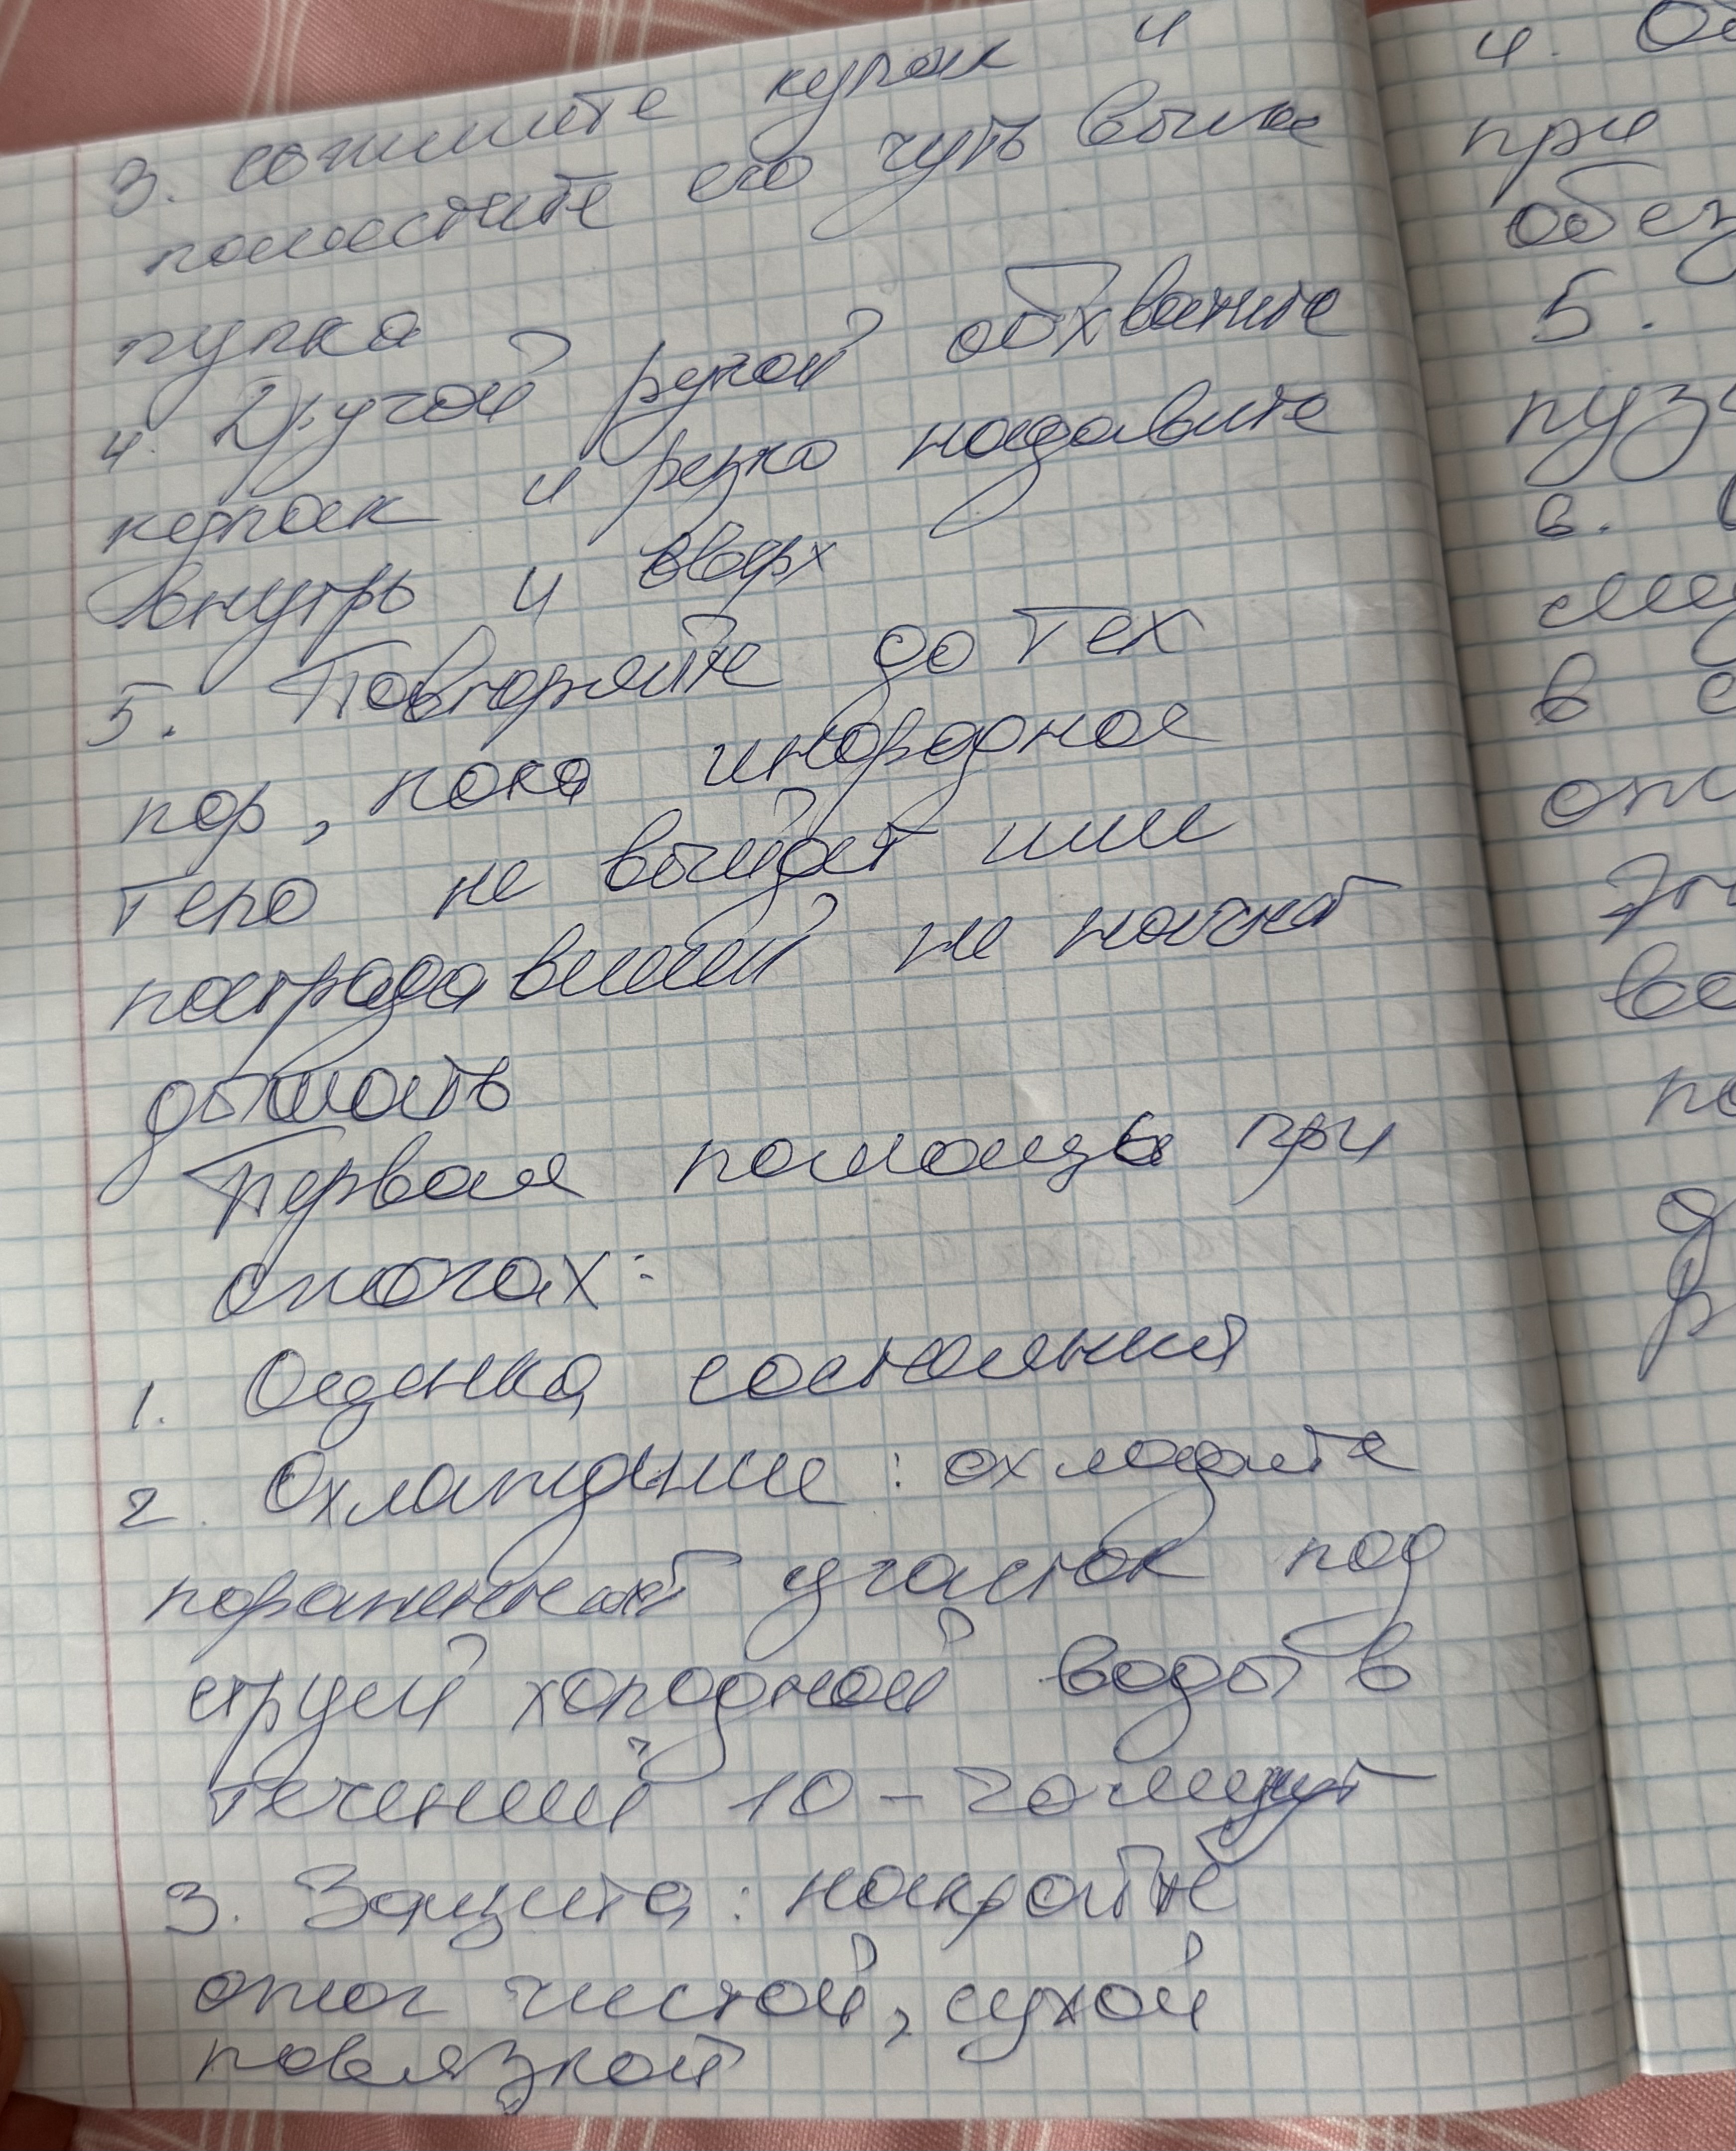 3. сожмите кулак и
поместите его чуть выше
пупка
4. Другой рукой обхватите
кулак и резко надавите
внутрь и вверх
5. Повторяйте до тех
пор, пока инородное
тело не выйдет или
пострадавший не начнет
дышать
Первая помощь при
ожогах:
1. Оценка состояния
2. Охлаждение: охладите
пораженный участок под
струей холодной воды в
течений 10-20 минут
3. Защита: накройте
ожог чистой, сухой
повязкой
4. Об
при
обез
5.
пуз
6.
в с
по